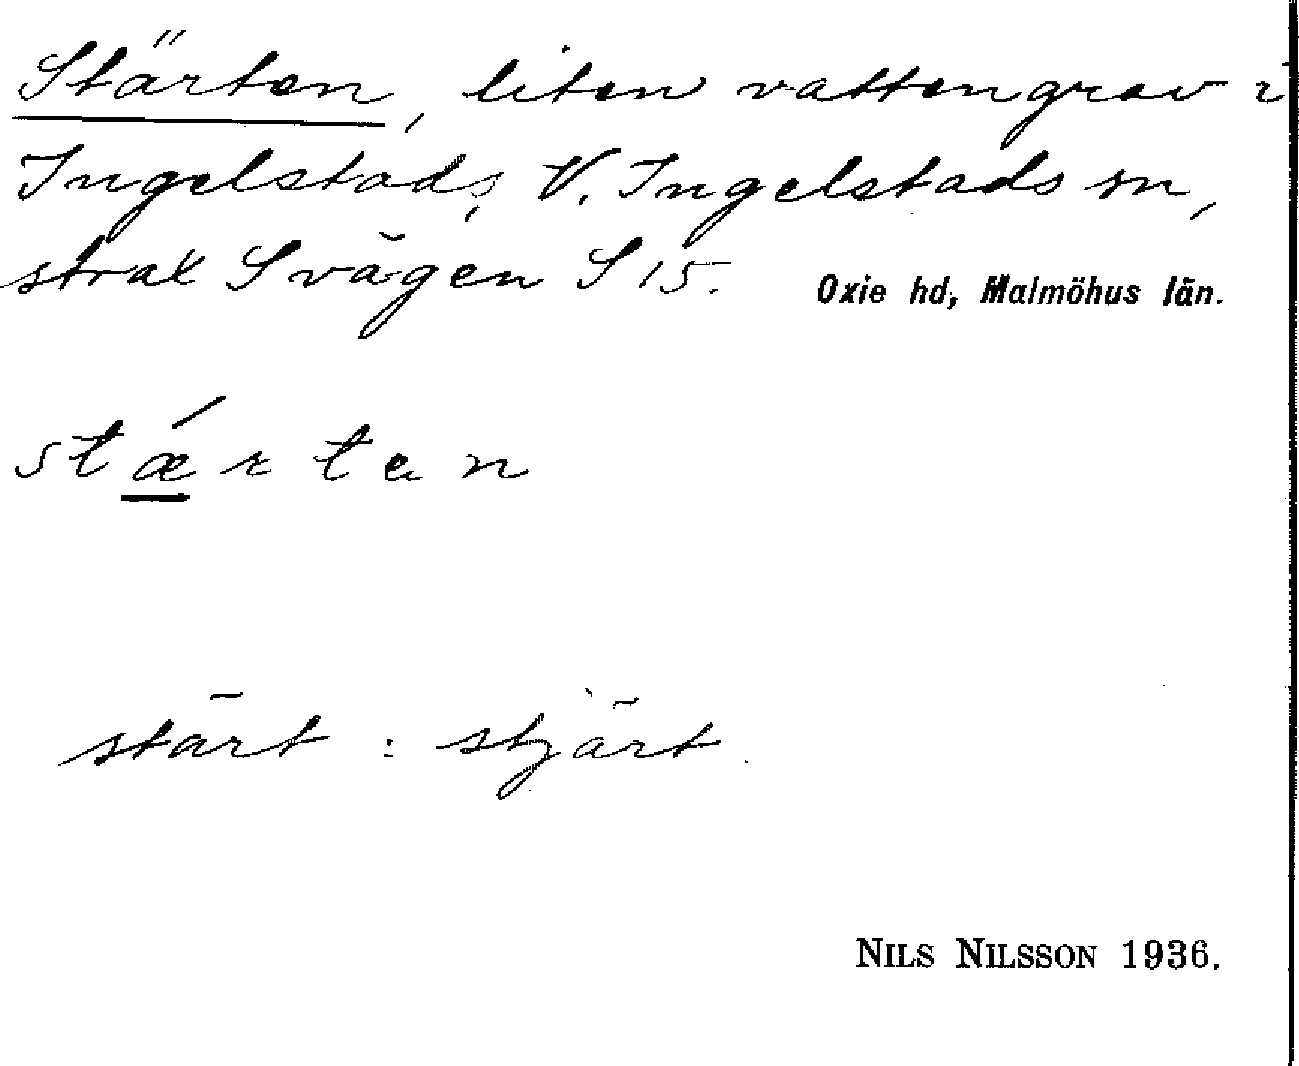 Stärten, liten vattengrav i
Ingelstad, V. Ingelstads sn,
strax S vägen S 15. Oxie hd, Malmöhus län.
stǽrten
stärt : stjärt.
NILS NILSSON 1936.